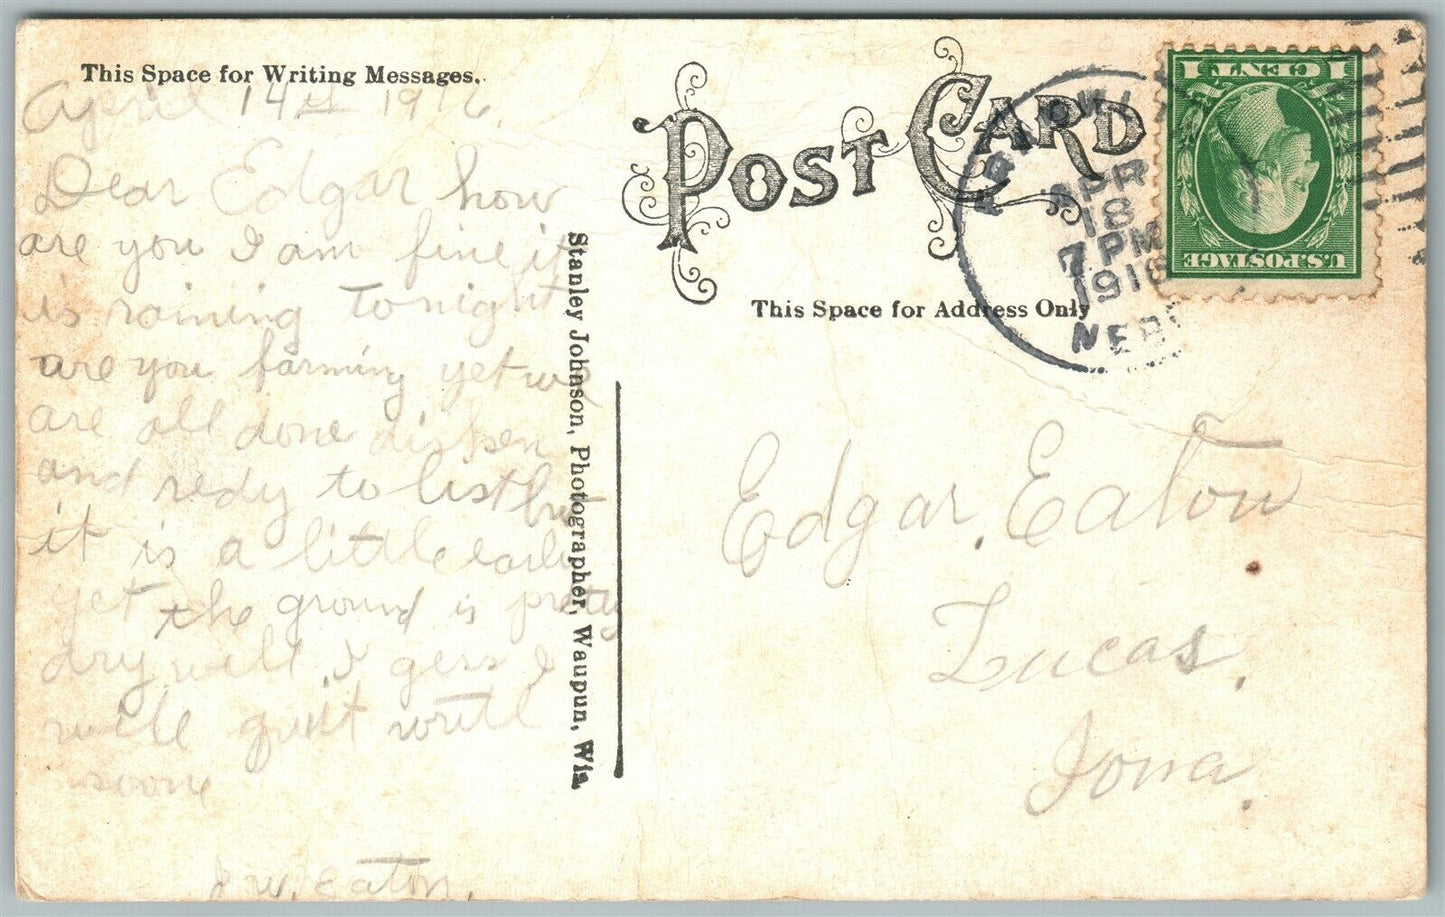 This Space for Writing Messages.
April 14th 1916.
Dear Edgar how
are you I am fine it
is raining to night
are you farming yet we
are all done disken
and redy to list but
it is a little early
yet the ground is pretty
dry well I gess I
will quit write
soon
J. W. Eaton.
Stanley Johnson, Photographer, Waupun, Wis.
POST CARD
This Space for Address Only
APR
18
7 PM
1916
NEBR
1 CENT 1
U.S.POSTAGE
Edgar. Eaton
Lucas.
Iowa.